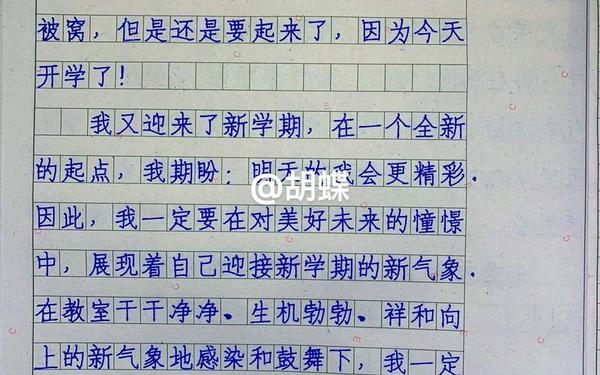 被窝，但是还是要起来了，因为今天
开学了！
我又迎来了新学期，在一个全新
的起点，我期盼：明天的我会更精彩.
@胡蝶
因此，我一定要在对美好未来的憧憬
中，展现着自己迎接新学期的新气象.
在教室干干净净、生机勃勃、祥和向
上的新气象地感染和鼓舞下，我一定